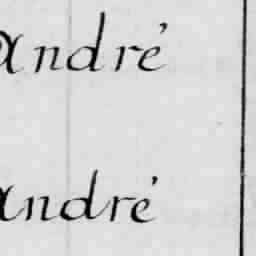 André
André